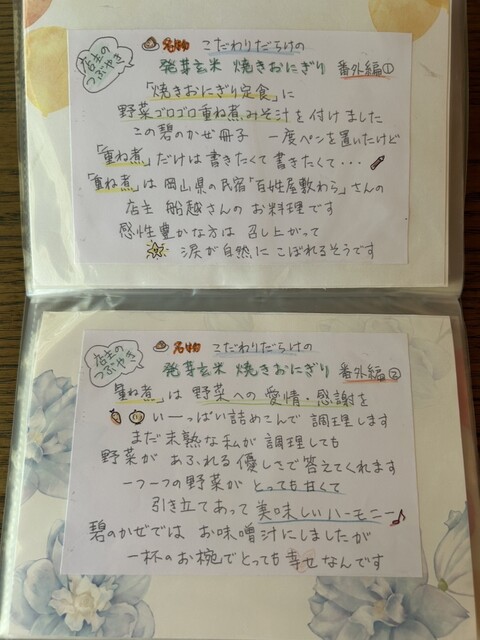 店主のつぶやき
名物 こだわりだらけの
発芽玄米 焼きおにぎり 番外編①
「焼きおにぎり定食」に
野菜ゴロゴロ重ね煮みそ汁を付けました
この碧のかぜ冊子 一度ペンを置いたけど
「重ね煮」だけは書きたくて書きたくて・・・
「重ね煮」は岡山県の民宿「百姓屋敷わら」さんの
店主 船越さんの お料理です
感性豊かな方は 召し上がって
涙が自然に こぼれるそうです
店主のつぶやき
名物 こだわりだらけの
発芽玄米 焼きおにぎり 番外編②
「重ね煮」は 野菜への 愛情・感謝を
いーっぱい詰めこんで 調理します
まだ未熟な私が 調理しても
野菜が あふれる優しさで答えてくれます
一つ一つの野菜が とっても甘くて
引き立てあって 美味しいハーモニー♪
碧のかぜでは お味噌汁にしましたが
一杯のお椀でとっても幸せなんです